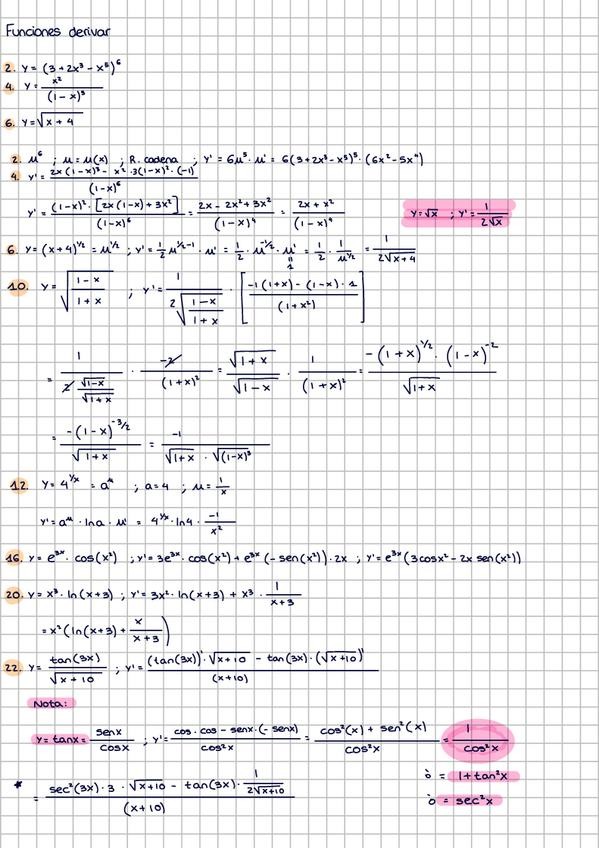 Funciones derivar
2. y = (3 + 2x³ - x⁵)⁶
4. y = x² / (1 - x)³
6. y = √(x + 4)
2. u⁶ ; u = u(x) ; R. cadena ; y' = 6u⁵ · u' = 6(3 + 2x³ - x⁵)⁵ · (6x² - 5x⁴)
4. y' = (2x(1 - x)³ - x² · 3(1 - x)² · (-1)) / (1 - x)⁶
y' = ((1 - x)² · [2x(1 - x) + 3x²]) / (1 - x)⁶ = (2x - 2x² + 3x²) / (1 - x)⁴ = (2x + x²) / (1 - x)⁴    y = √x ; y' = 1 / (2√x)
6. y = (x + 4)^(1/2) = u^(1/2) ; y' = 1/2 u^(1/2 - 1) · u' = 1/2 · u^(-1/2) · u' = 1/2 · 1/u^(1/2) = 1 / (2√(x + 4))
=
1
10. y = √((1 - x) / (1 + x)) ; y' = 1 / (2√((1 - x) / (1 + x))) · [(-1(1 + x) - (1 - x) · 1) / (1 + x²)]
= 1 / (2 √(1 - x) / √(1 + x)) · -2 / (1 + x)² = √(1 + x) / √(1 - x) · 1 / (1 + x)² = (-(1 + x)^(1/2) · (1 - x)^(-2)) / √(1 + x)
= (-(1 - x)^(-3/2)) / √(1 + x) = -1 / (√(1 + x) · √((1 - x)³))
12. y = 4^(1/x) = aᵘ ; a = 4 ; u = 1/x
y' = aᵘ · ln a · u' = 4^(1/x) · ln 4 · -1/x²
16. y = e³ˣ · cos(x²) ; y' = 3e³ˣ · cos(x²) + e³ˣ (- sen(x²)) · 2x ; y' = e³ˣ (3cosx² - 2x sen(x²))
20. y = x³ · ln(x + 3) ; y' = 3x² · ln(x + 3) + x³ · 1 / (x + 3)
= x² (ln(x + 3) + x / (x + 3))
22. y = tan(3x) / √(x + 10) ; y' = ((tan(3x))' · √(x + 10) - tan(3x) · (√(x + 10))') / (x + 10)
Nota:
y = tanx = senx / cosx ; y' = (cos · cos - senx · (- senx)) / cos²x = (cos²(x) + sen²(x)) / cos²x = 1 / cos²x
ò = 1 + tan²x
* = (sec²(3x) · 3 · √(x + 10) - tan(3x) · 1 / (2√(x + 10))) / (x + 10)
ò = sec²x